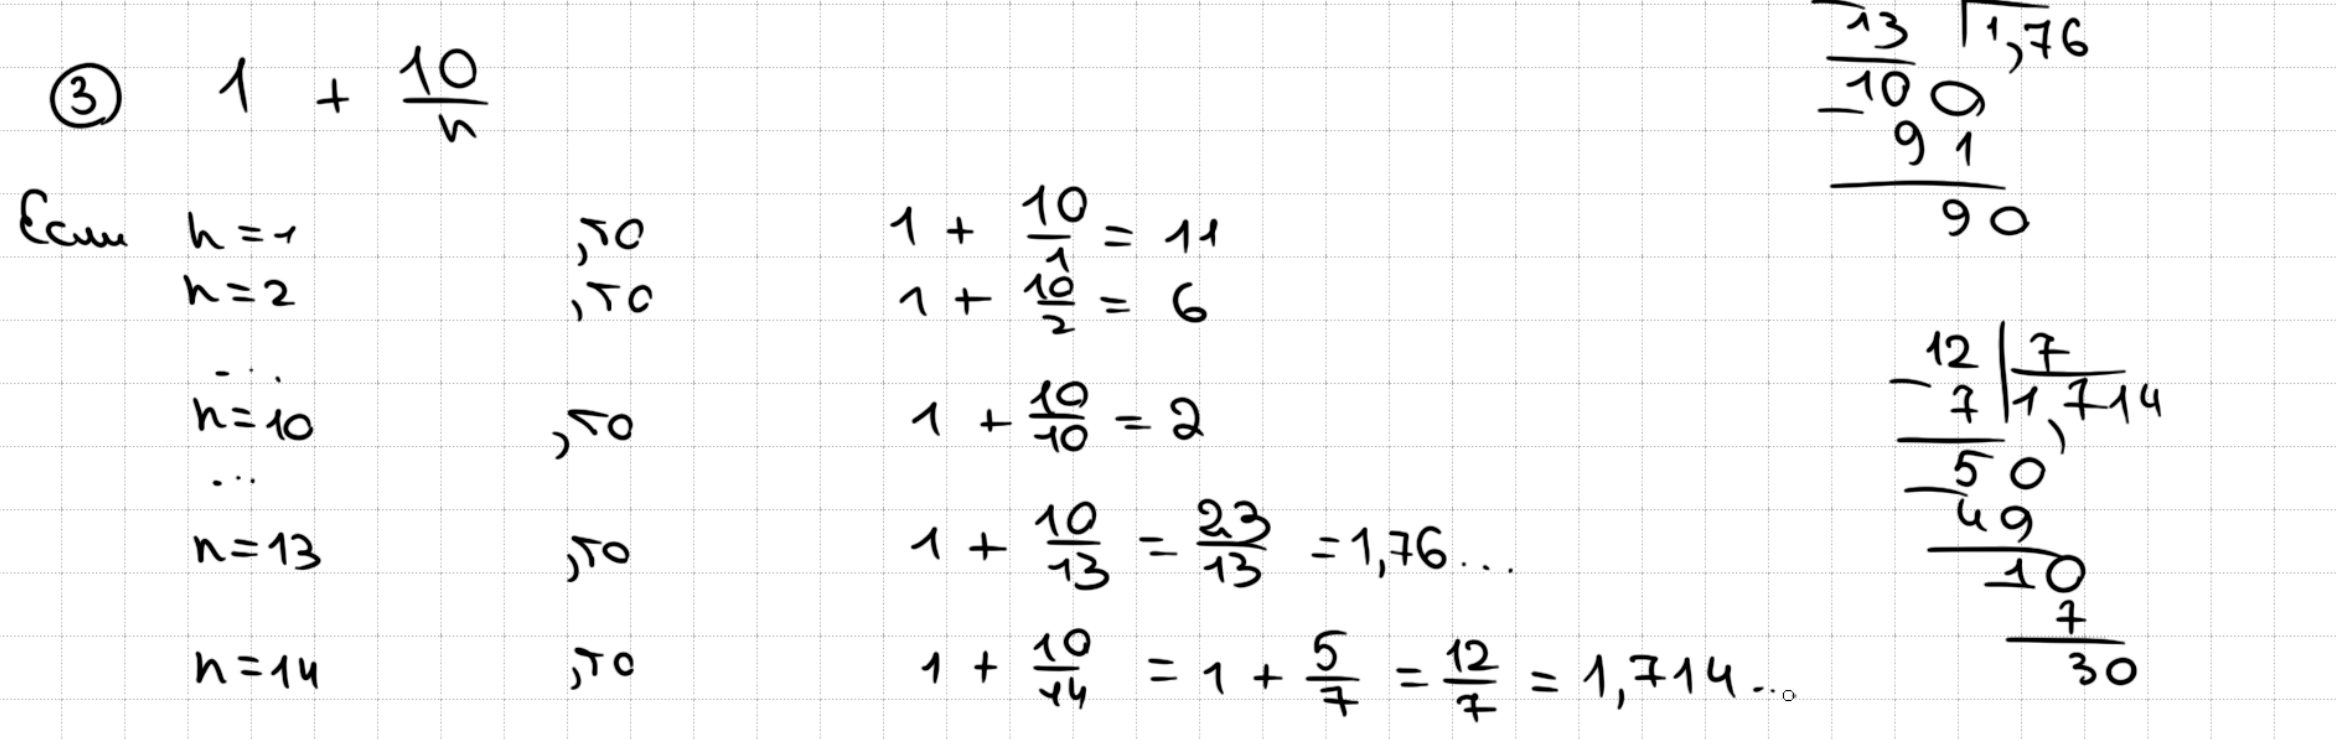 ③ 1 + 10/n
Если n=1 ,то 1 + 10/1 = 11
n=2 ,то 1 + 10/2 = 6
...
n=10 ,то 1 + 10/10 = 2
...
n=13 ,то 1 + 10/13 = 23/13 = 1,76...
n=14 ,то 1 + 10/14 = 1 + 5/7 = 12/7 = 1,714...
13 1,76
100
91
90
12 7
7 1,714
50
49
10
7
30